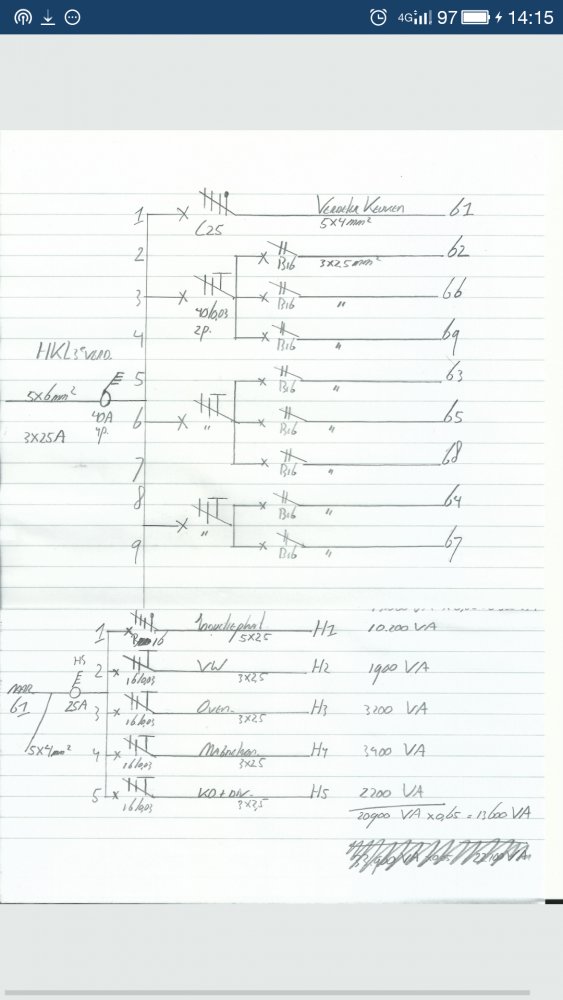 4G 97 14:15
1 C25 Verdeler Keuken 5x4mm² 61
2 B16 3x2.5mm² 62
3 40/0,03 2p. B16 " 66
4 B16 " 69
HKL 3e VERD.
5x6mm² 40A 4p.
3x25A
5 B16 " 63
6 " B16 " 65
7 B16 " 68
8 B16 " 64
9 " B16 " 67
1 16 5x2.5 H1 10.200 VA
2 16/0,03 VW 3x2.5 H2 1900 VA
HS 25A
61
5x4mm²
3 16/0,03 Oven 3x2.5 H3 3200 VA
4 16/0,03 3x2.5 H4 3400 VA
5 16/0,03 KD+DIV. 3x2.5 H5 2200 VA
20900 VA x 0,65 = 13600 VA